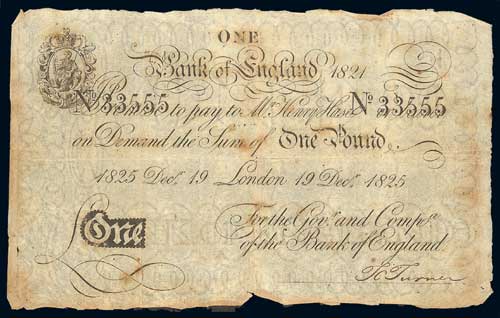 ONE
Bank of England 1821
No 33555 I Promise to pay to Mr. Henry Hase No 33555
on Demand the Sum of One Pound
1825 Decr. 19 London 19 Decr. 1825
For the Govr. and Compa.
of the Bank of England
£ One